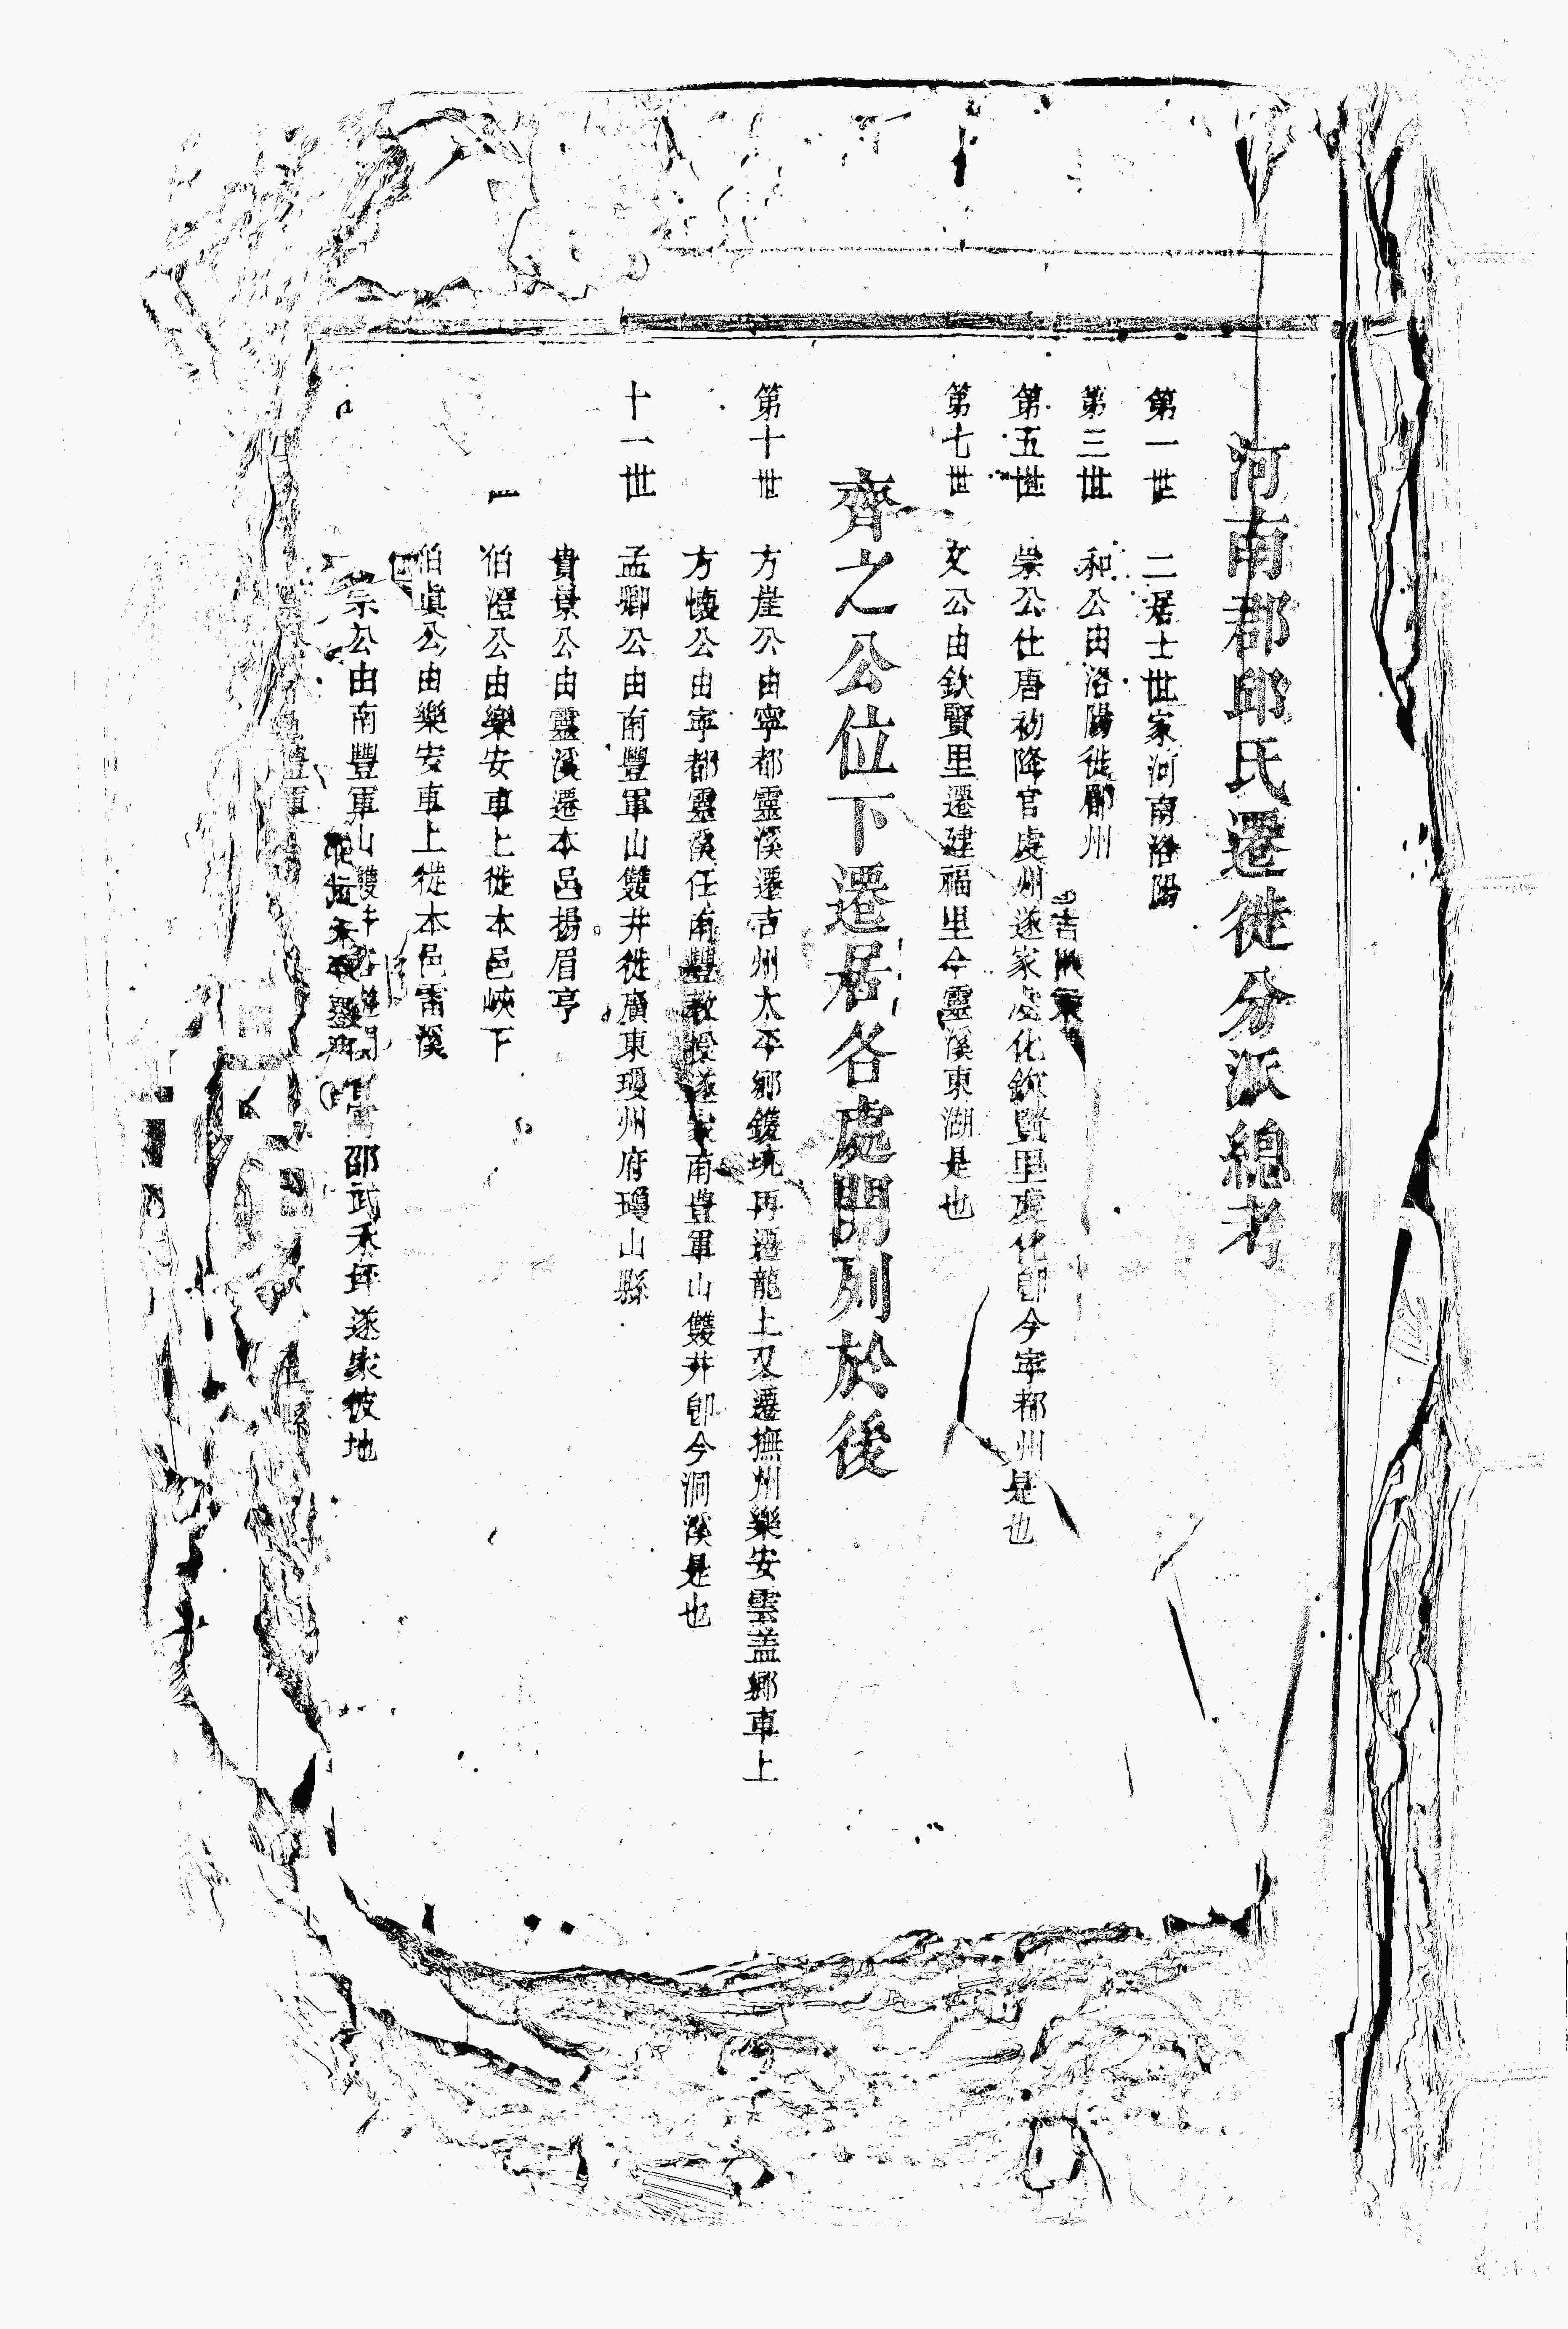 河南郡邱氏遷徙分派總考
第一世 二居士世家河南洛陽
第三世 和公由洛陽徙鄜州
第五世 崇公仕唐初降官虔州遂家虔化欽賢里虔化卽今寧都州是也
第七世 文公由欽賢里遷建福里今靈溪東湖是也
齊之公位下遷居各處開列於後
第十世 方崖公由寧都靈溪遷吉州太平鄉鑊坑再遷龍上又遷撫州樂安雲盖鄉車上
方懷公由寧都靈溪任南豐教授遂家南豊軍山雙井卽今洞溪是也
十一世 孟卿公由南豐軍山雙井徙廣東瓊州府瓊山縣
貴景公由靈溪遷本邑楊眉亭
伯澄公由樂安車上徙本邑峽下
伯眞公由樂安車上徙本邑雷溪
宗公由南豐軍山雙井 邵武禾坪遂家彼地
豐軍